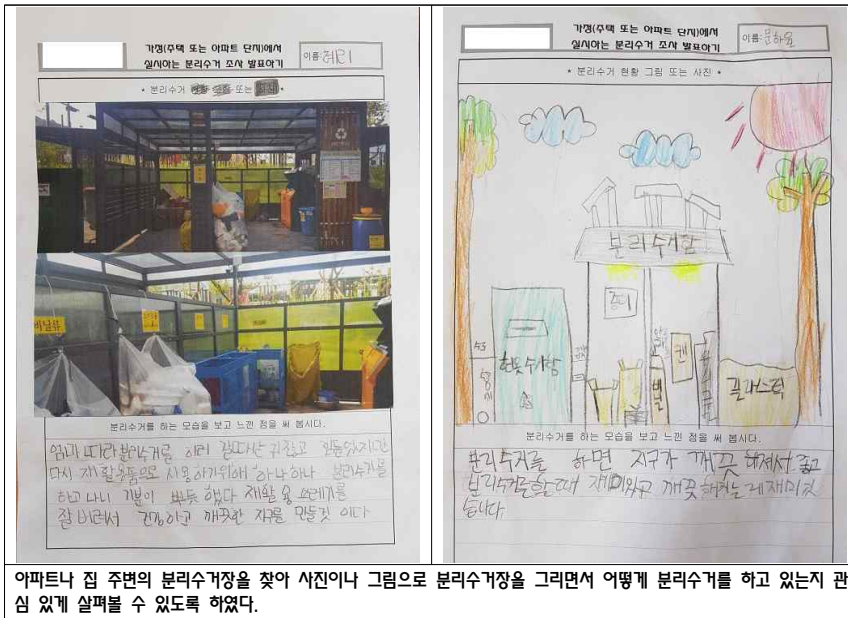 가정(주택 또는 아파트 단지)에서
실시하는 분리수거 조사 발표하기
이름:혜리
* 분리수거 현황 그림 또는 사진 *
비닐류
분리수거를 하는 모습을 보고 느낀 점을 써 봅시다.
엄마 따라 분리수거를 하러 갔다 귀찮고 힘들었지만
다시 재활용품으로 사용하기위해 하나하나 분리수거를
하고 나니 기분이 뿌듯했다 재활용 쓰레기를
잘 버려서 건강하고 깨끗한 지구를 만들것 이다
가정(주택 또는 아파트 단지)에서
실시하는 분리수거 조사 발표하기
이름:문하윤
* 분리수거 현황 그림 또는 사진 *
분리수거함
종이
헌옷수거함
비닐
캔
플래스틱
분리수거를 하는 모습을 보고 느낀 점을 써 봅시다.
분리수거를 하면 지구가 깨끗해져서 좋고
분리수거를할때 재미있고 깨끗해지는게 재미있
습니다
아파트나 집 주변의 분리수거장을 찾아 사진이나 그림으로 분리수거장을 그리면서 어떻게 분리수거를 하고 있는지 관
심 있게 살펴볼 수 있도록 하였다.